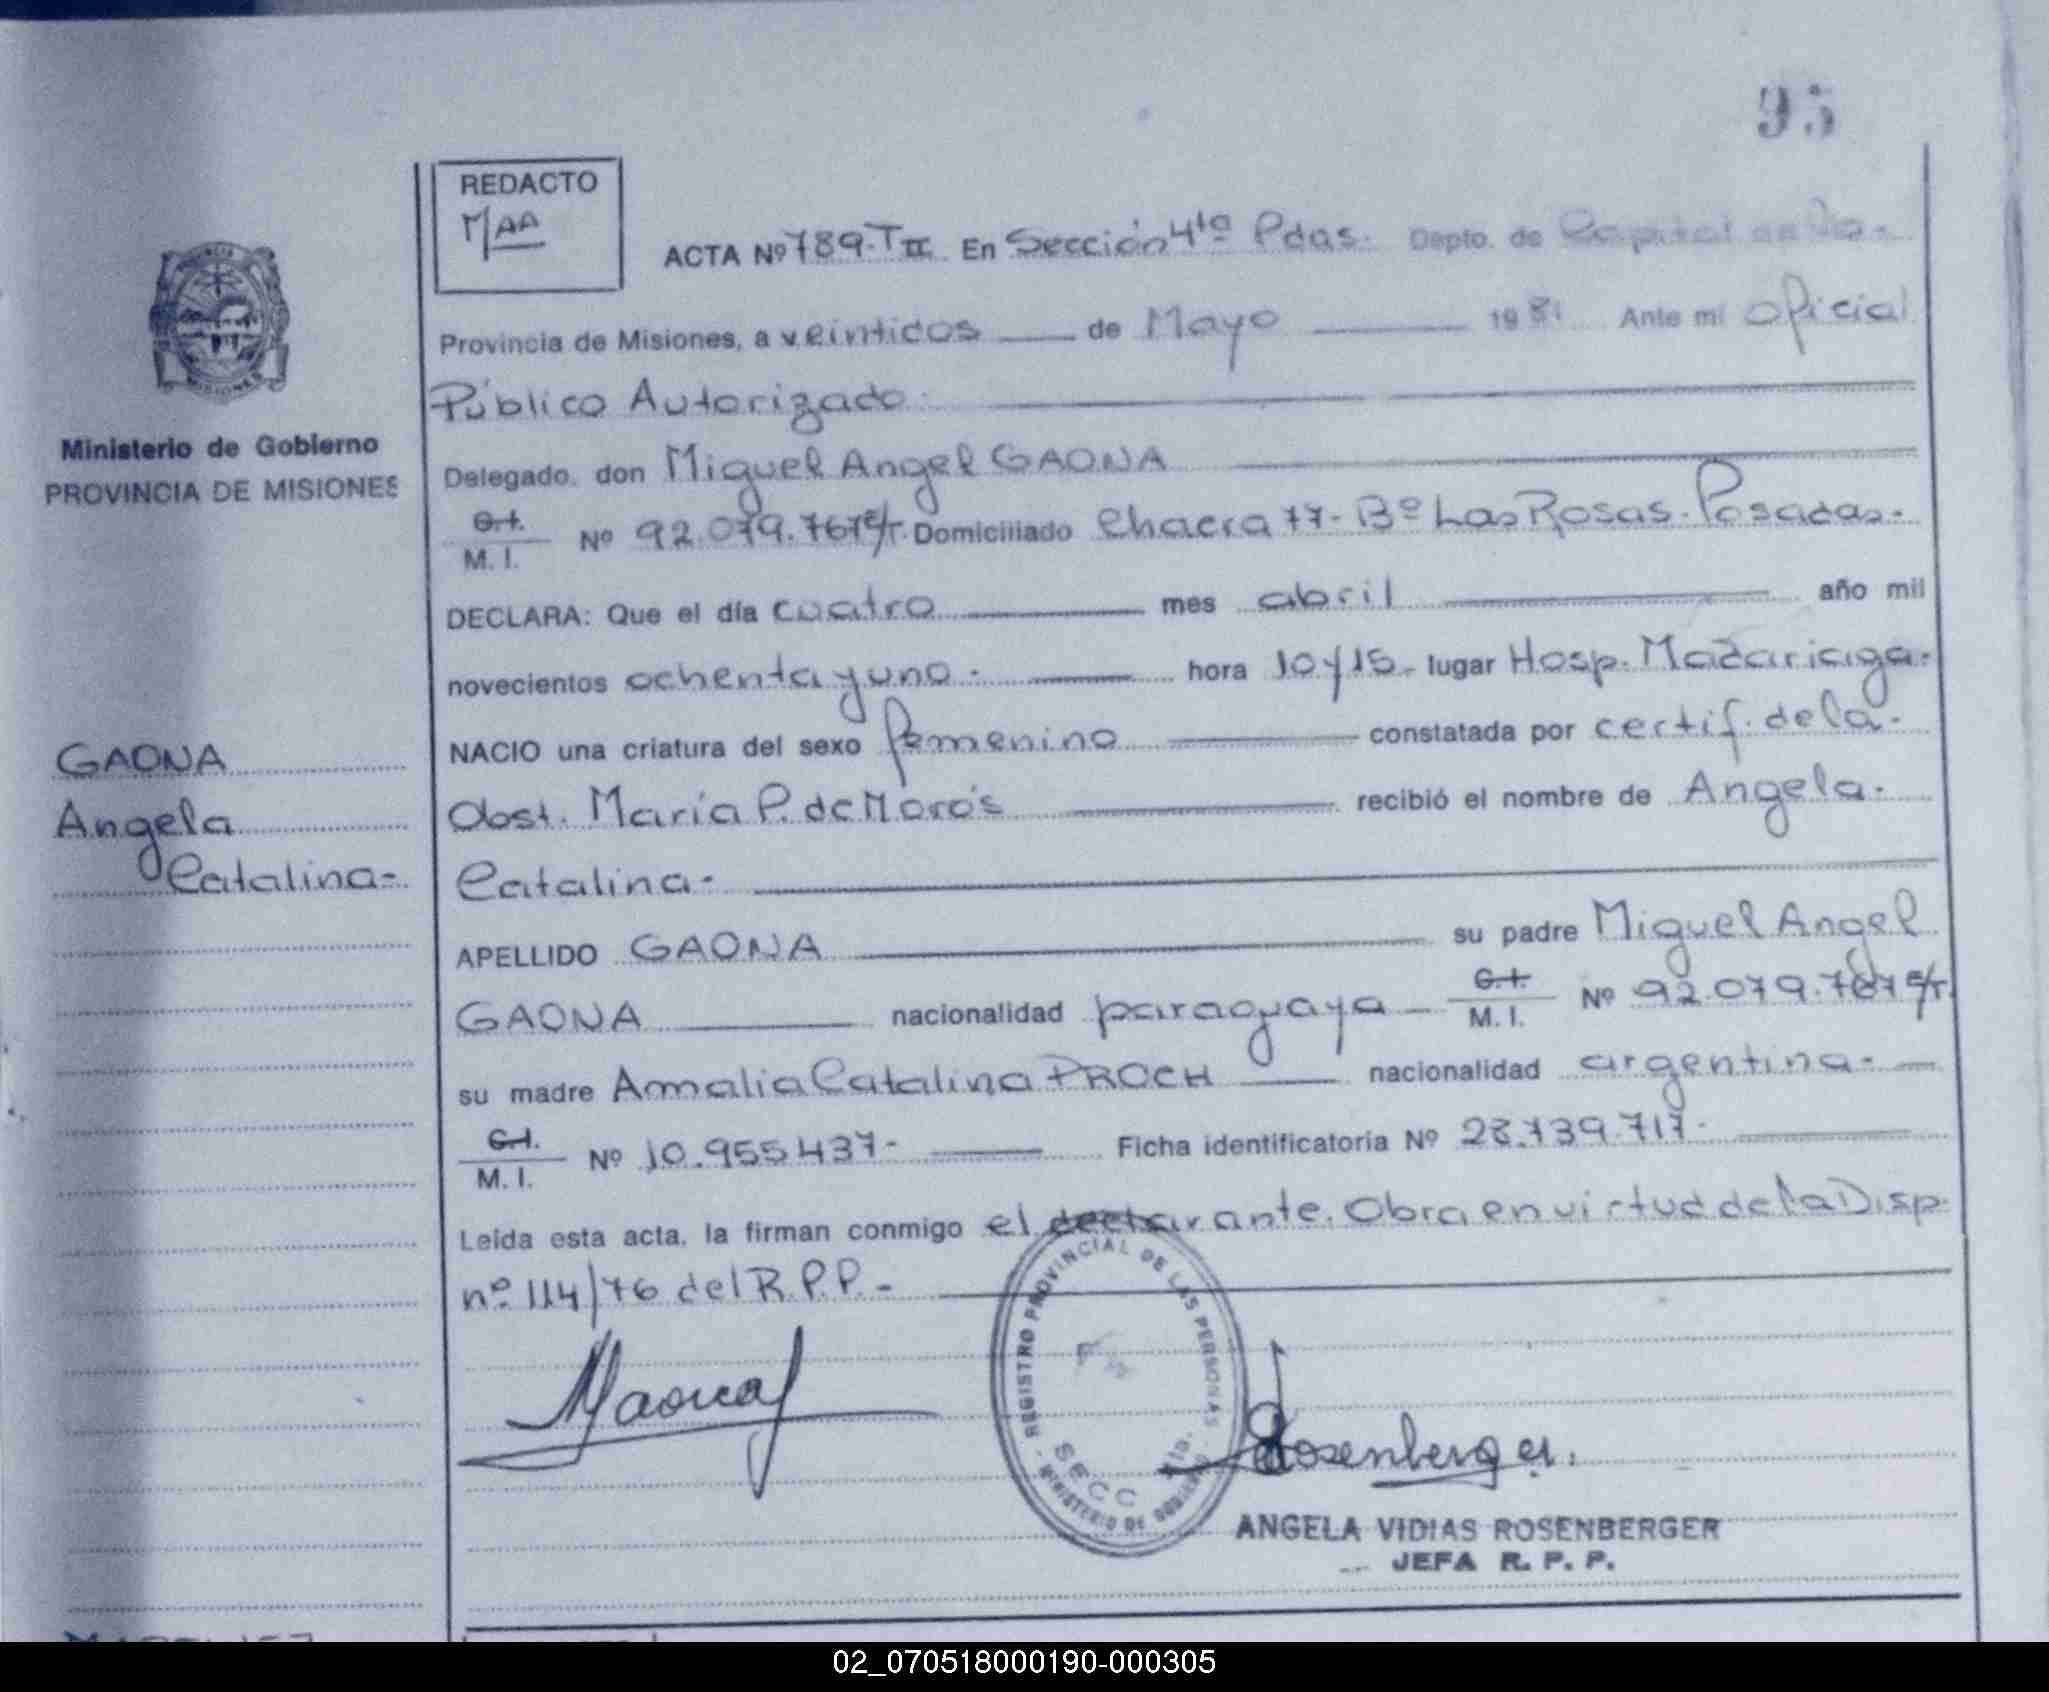 95
REDACTO
MAA
ACTA Nº 789-TII En Sección 4ta Pdas. Depto. de Capital
Provincia de Misiones, a veintidos de Mayo 1981 Ante mí Oficial
Público Autorizado.
Delegado, don Miguel Angel GAONA
C.I. M.I. Nº 92.079.767 E/T. Domiciliado Chacra 77-Bº Las Rosas-Posadas-
DECLARA: Que el día cuatro mes abril año mil
novecientos ochenta y uno- hora 10 y 15- lugar Hosp. Madariaga-
NACIO una criatura del sexo femenino constatada por certif. de la-
Obst. María P. de Moro's recibió el nombre de Angela-
Catalina-
APELLIDO GAONA su padre Miguel Angel
GAONA nacionalidad paraguaya C.I. M.I. Nº 92.079.767 E/T.
su madre Amalia Catalina PROCH nacionalidad argentina-
C.I. M.I. Nº 10.955.437- Ficha identificatoria Nº 28.739.717-
Leída esta acta, la firman conmigo el declarante. Obra en virtud de la Disp.
nº 114/76 del R.P.P.-
PROVINCIA MISIONES
Ministerio de Gobierno
PROVINCIA DE MISIONES
GAONA
Angela
Catalina-
Gaona
REGISTRO PROVINCIAL DE LAS PERSONAS
SECC 4ta.
MINISTERIO DE GOBIERNO
Rosenberger.
ANGELA VIDIAS ROSENBERGER
JEFA R. P. P.
02_070518000190-000305